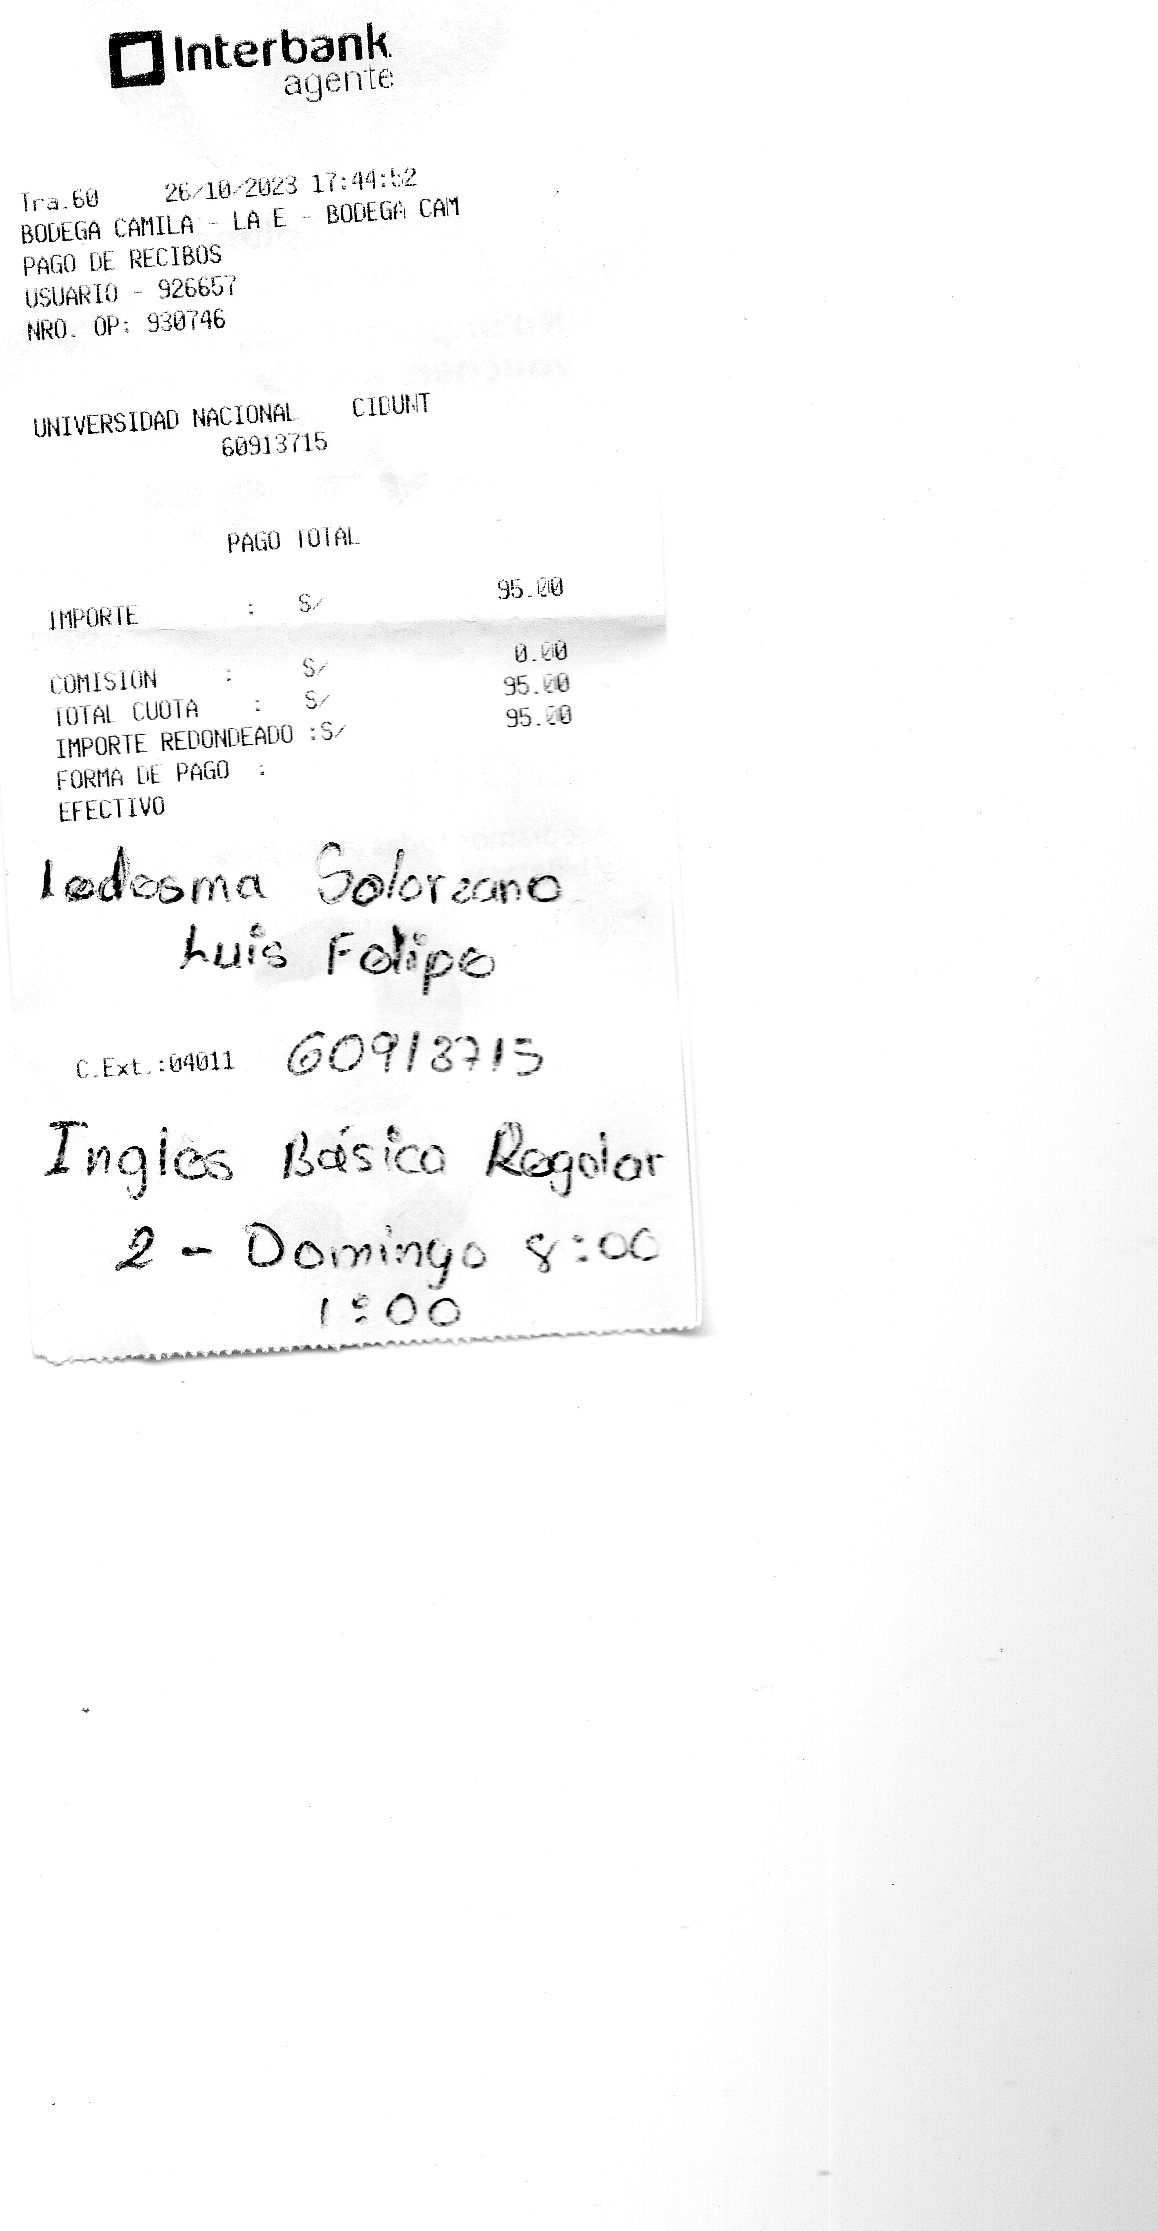 Interbank
agente
Tra.60 26/10/2023 17:44:52
BODEGA CAMILA - LA E - BODEGA CAM
PAGO DE RECIBOS
USUARIO - 926657
NRO. OP: 930746
UNIVERSIDAD NACIONAL CIDUNT
60913715
PAGO TOTAL
IMPORTE : S/ 95.00
COMISION : S/ 0.00
TOTAL CUOTA : S/ 95.00
IMPORTE REDONDEADO :S/ 95.00
FORMA DE PAGO :
EFECTIVO
Ledesma Solorzano
Luis Felipe
C.Ext.:04011 60913715
Ingles Básico Regular
2 - Domingo 8:00
1:00